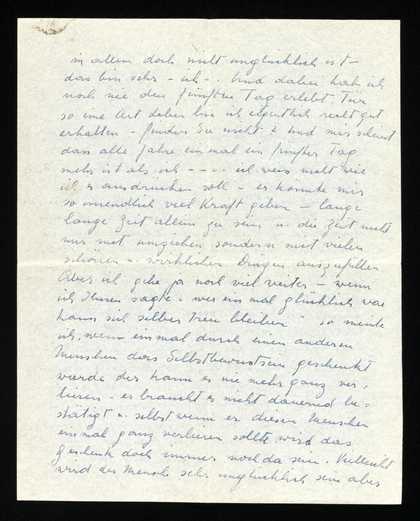 in allem doch nicht unglücklich ist –
das bin sehr – ich – . Und dabei hab ich
noch nie den fünften Tag erlebt. Für
so eine Art Leben bin ich eigentlich recht gut
erhalten – finden Sie nicht? Und mir scheint
dass alle Jahre einmal ein fünfter Tag
mehr ist als ich – – – – ich weis nicht wie
ich es ausdrücken soll – es könnte mir
so unendlich viel Kraft geben – lange
lange Zeit allein zu sein u. die Zeit nicht
nur mit sondern mit vielen
schönen u. wirklichen Dingen auszufüllen
Aber ich gehe ja noch viel weiter – wenn
ich Ihnen sagte – wer einmal glücklich war
kann sich selber treu bleiben" so meinte
ich, wenn einmal durch einen anderen
Menschen das Selbstbewustsein geschenkt
wurde der kann es nie mehr ganz ver-
lieren – es braucht es nicht dauernd be-
stätigt u. selbst wenn er diesen Menschen
einmal ganz verlieren sollte wird das
Geschenk doch immer noch da sein. Vielleicht
wird der Mensch sehr unglücklich sein aber